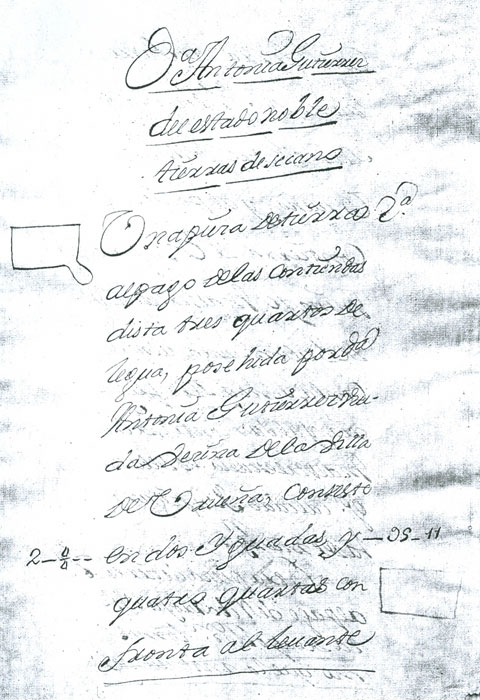 Dª Antonia Gutierrez
de el estado noble
tierras de secano
Una pieza de tierra 2ª
al pago de las Contiendas
dista tres quartos de
legua, posehida por dª
Antonia Gutierrez viu-
da vecina de la Villa
de Urueña, Consiste
2 - 4/4 -- en dos Yguadas, y - 95 - 11
quatro quartas con
fronta al levante